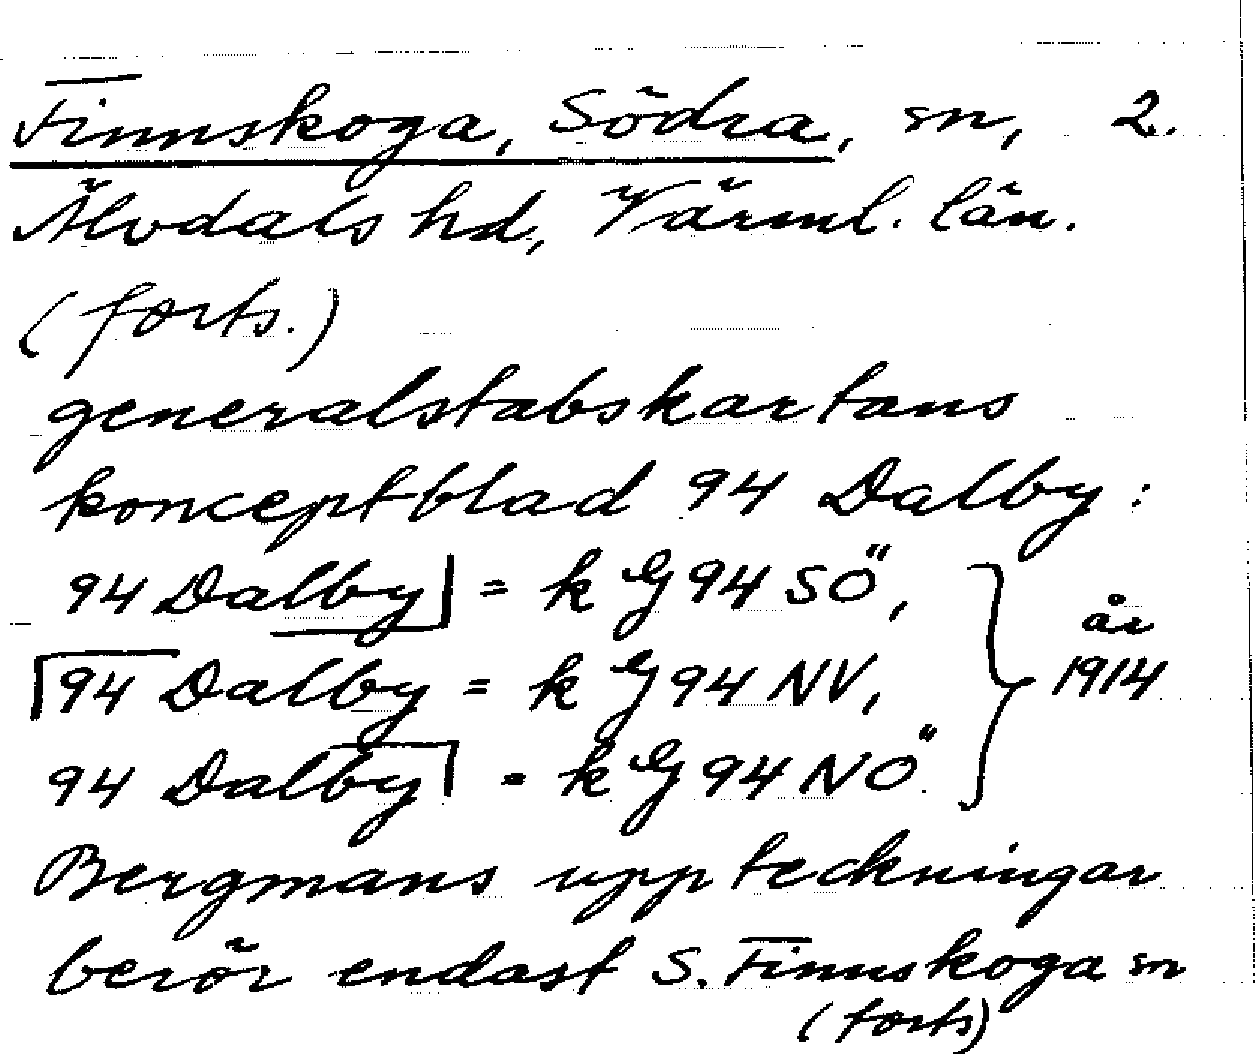 Finnskoga, Södra, sn, 2.
Älvdals hd, Värml. län.
(forts.)
generalstabskartans
konceptblad 94 Dalby:
94 Dalby = k G 94 SÖ,
94 Dalby = k G 94 NV,
94 Dalby = k G 94 NÖ
år
1914
Bergmans uppteckningar
berör endast S. Finnskoga sn
(forts)